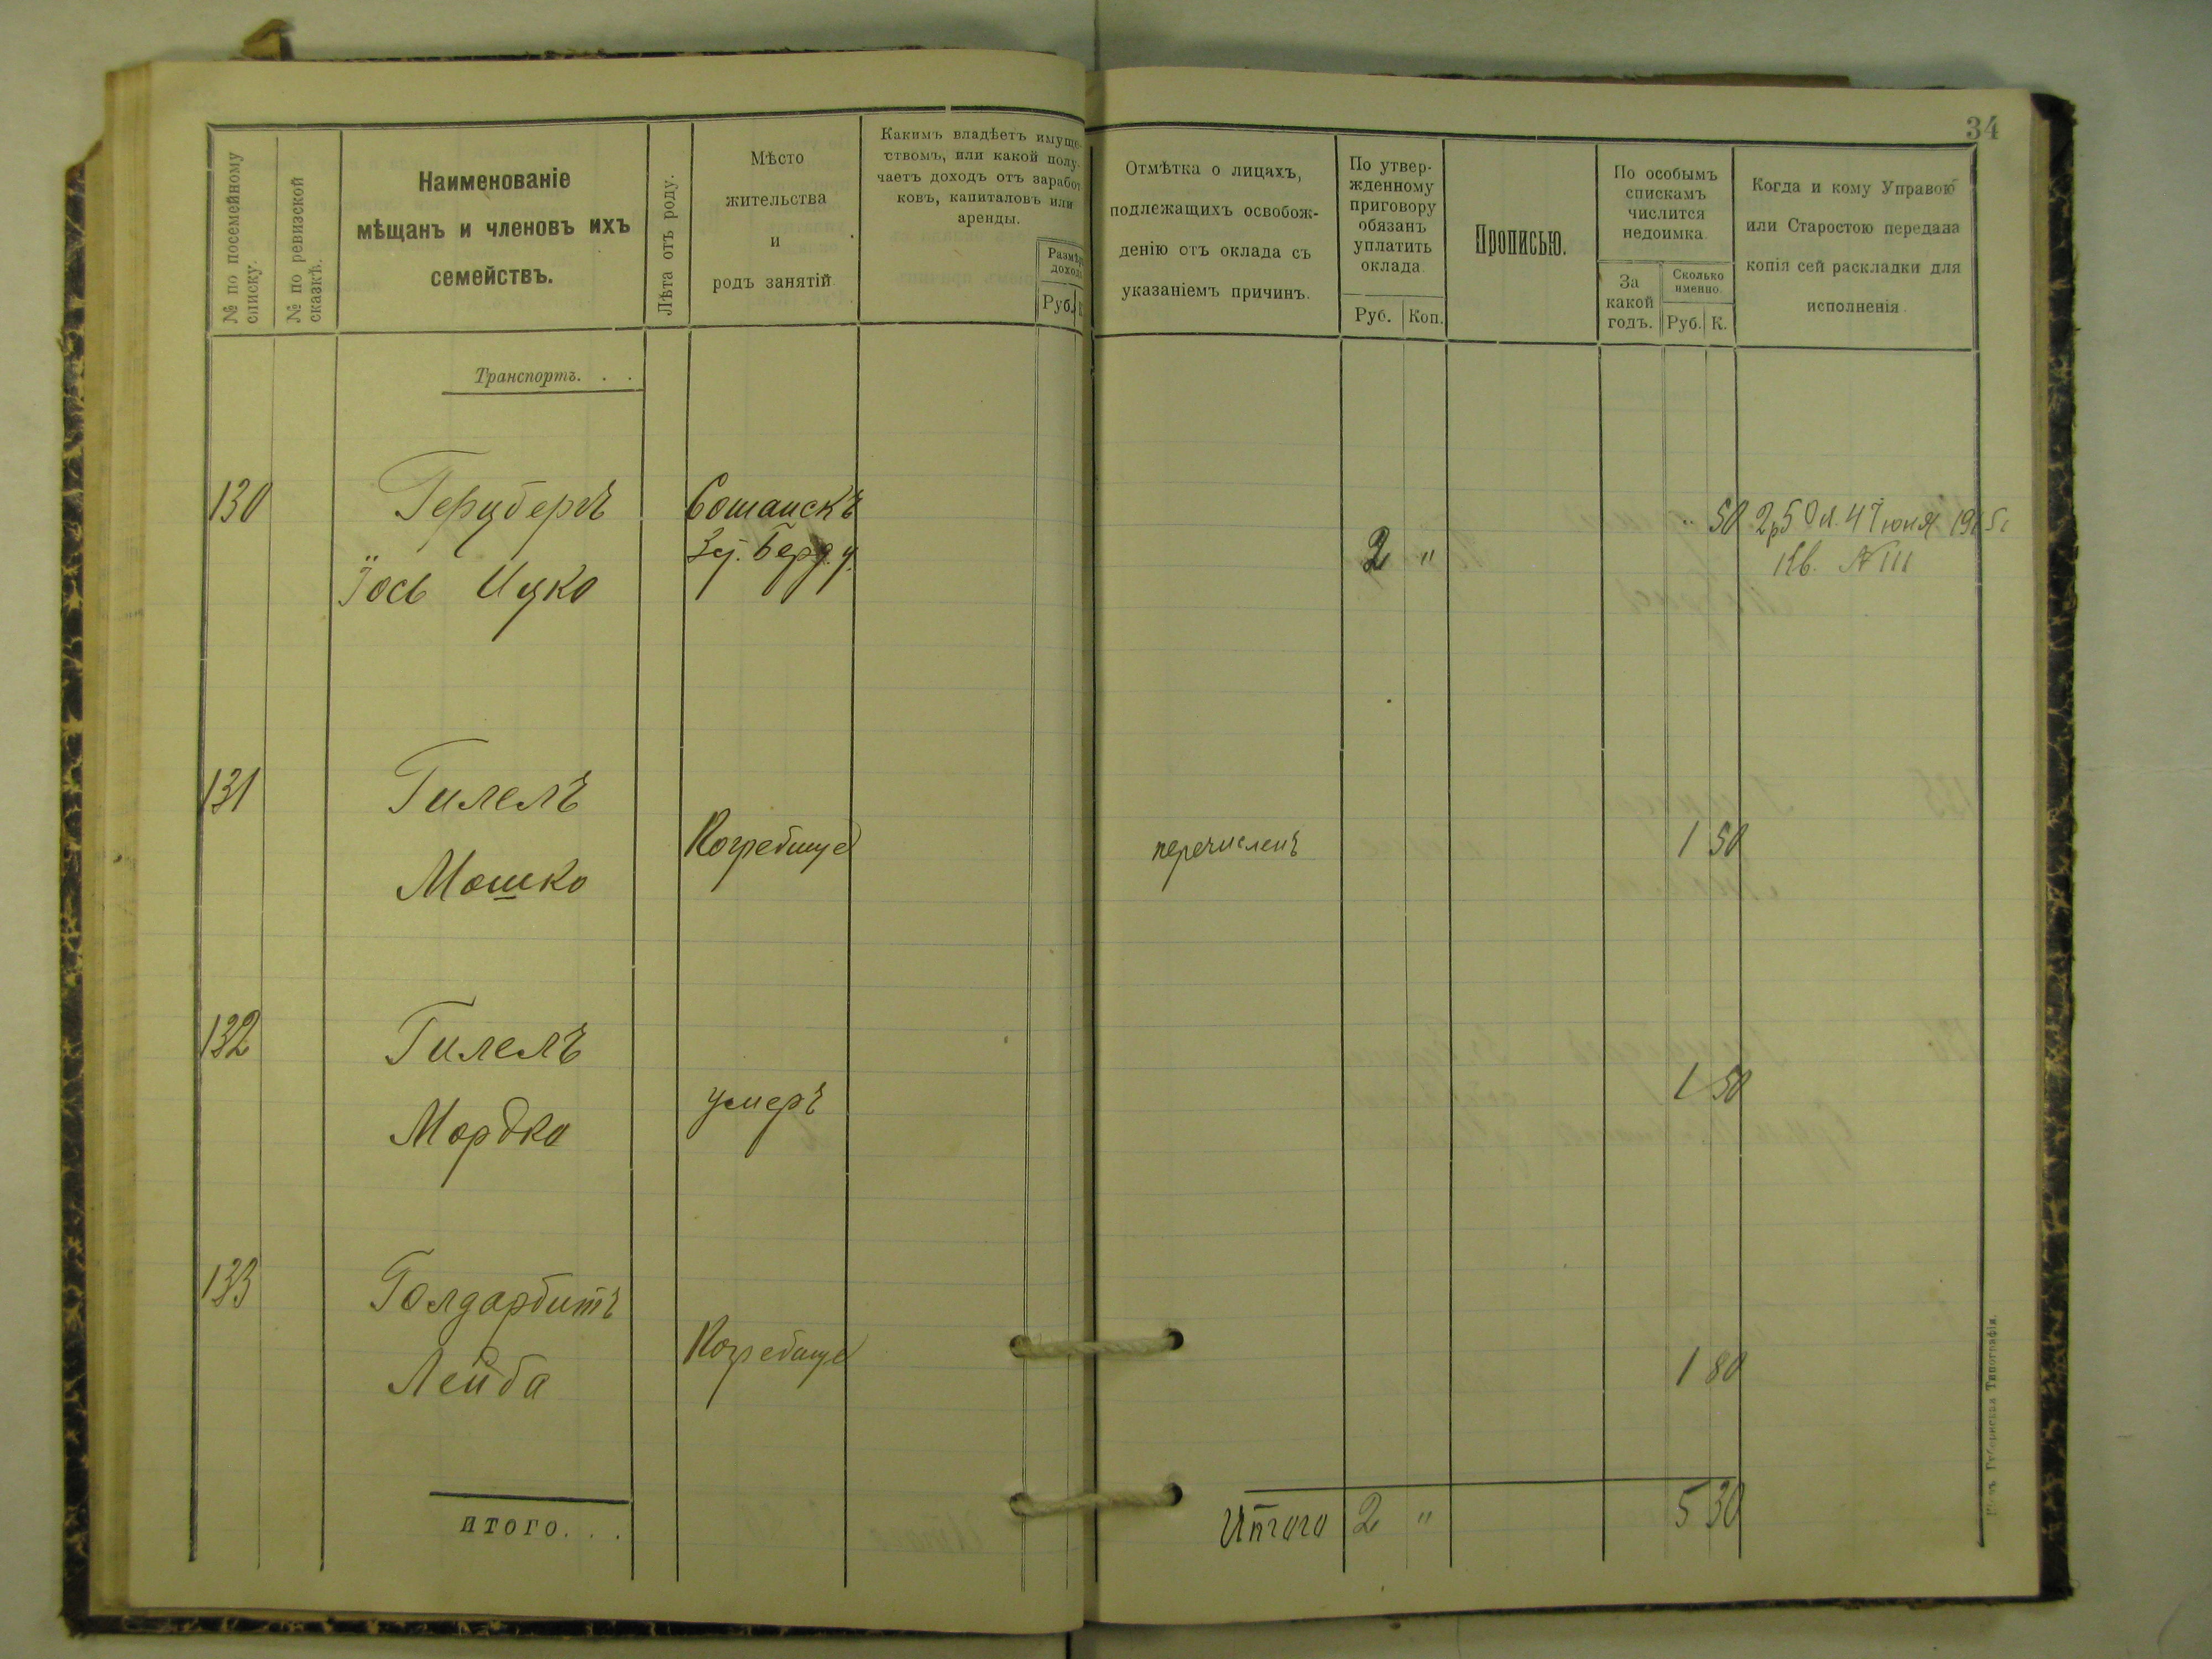 34
№ по посемейному
списку.
№ по ревизской
сказкѣ.
Наименованіе
мѣщанъ и членовъ ихъ
семействъ.
Лѣта отъ роду.
Мѣсто
жительства
и
родъ занятій
Какимъ владѣетъ имуще-
ствомъ, или какой полу-
чаетъ доходъ отъ заработ
ковъ, капиталовъ или
аренды.
Размѣръ
дохода
Руб. К.
Отмѣтка о лицахъ,
подлежащихъ освобож-
денію отъ оклада съ
указаніемъ причинъ.
По утвер-
жденному
приговору
обязанъ
уплатить
оклада.
Руб. Коп.
Прописью.
По особымъ
спискамъ
числится
недоимка.
За
какой
годъ.
Сколько
именно.
Руб. К.
Когда и кому Управою
или Старостою передана
копія сей раскладки для
исполненія
Транспортъ. . .
130 Герцбергъ
Іось Ицко
Берд. у.
2 "
" 50
Кв. №111
131 Гилелъ
Мошко
перечисленъ
1 50
132 Гилелъ
Мордко
умеръ
1 50
133 Голдарбитъ
Лейба
1 80
итого. . .
Итого 2 " 5 30
Губернская Типографія.